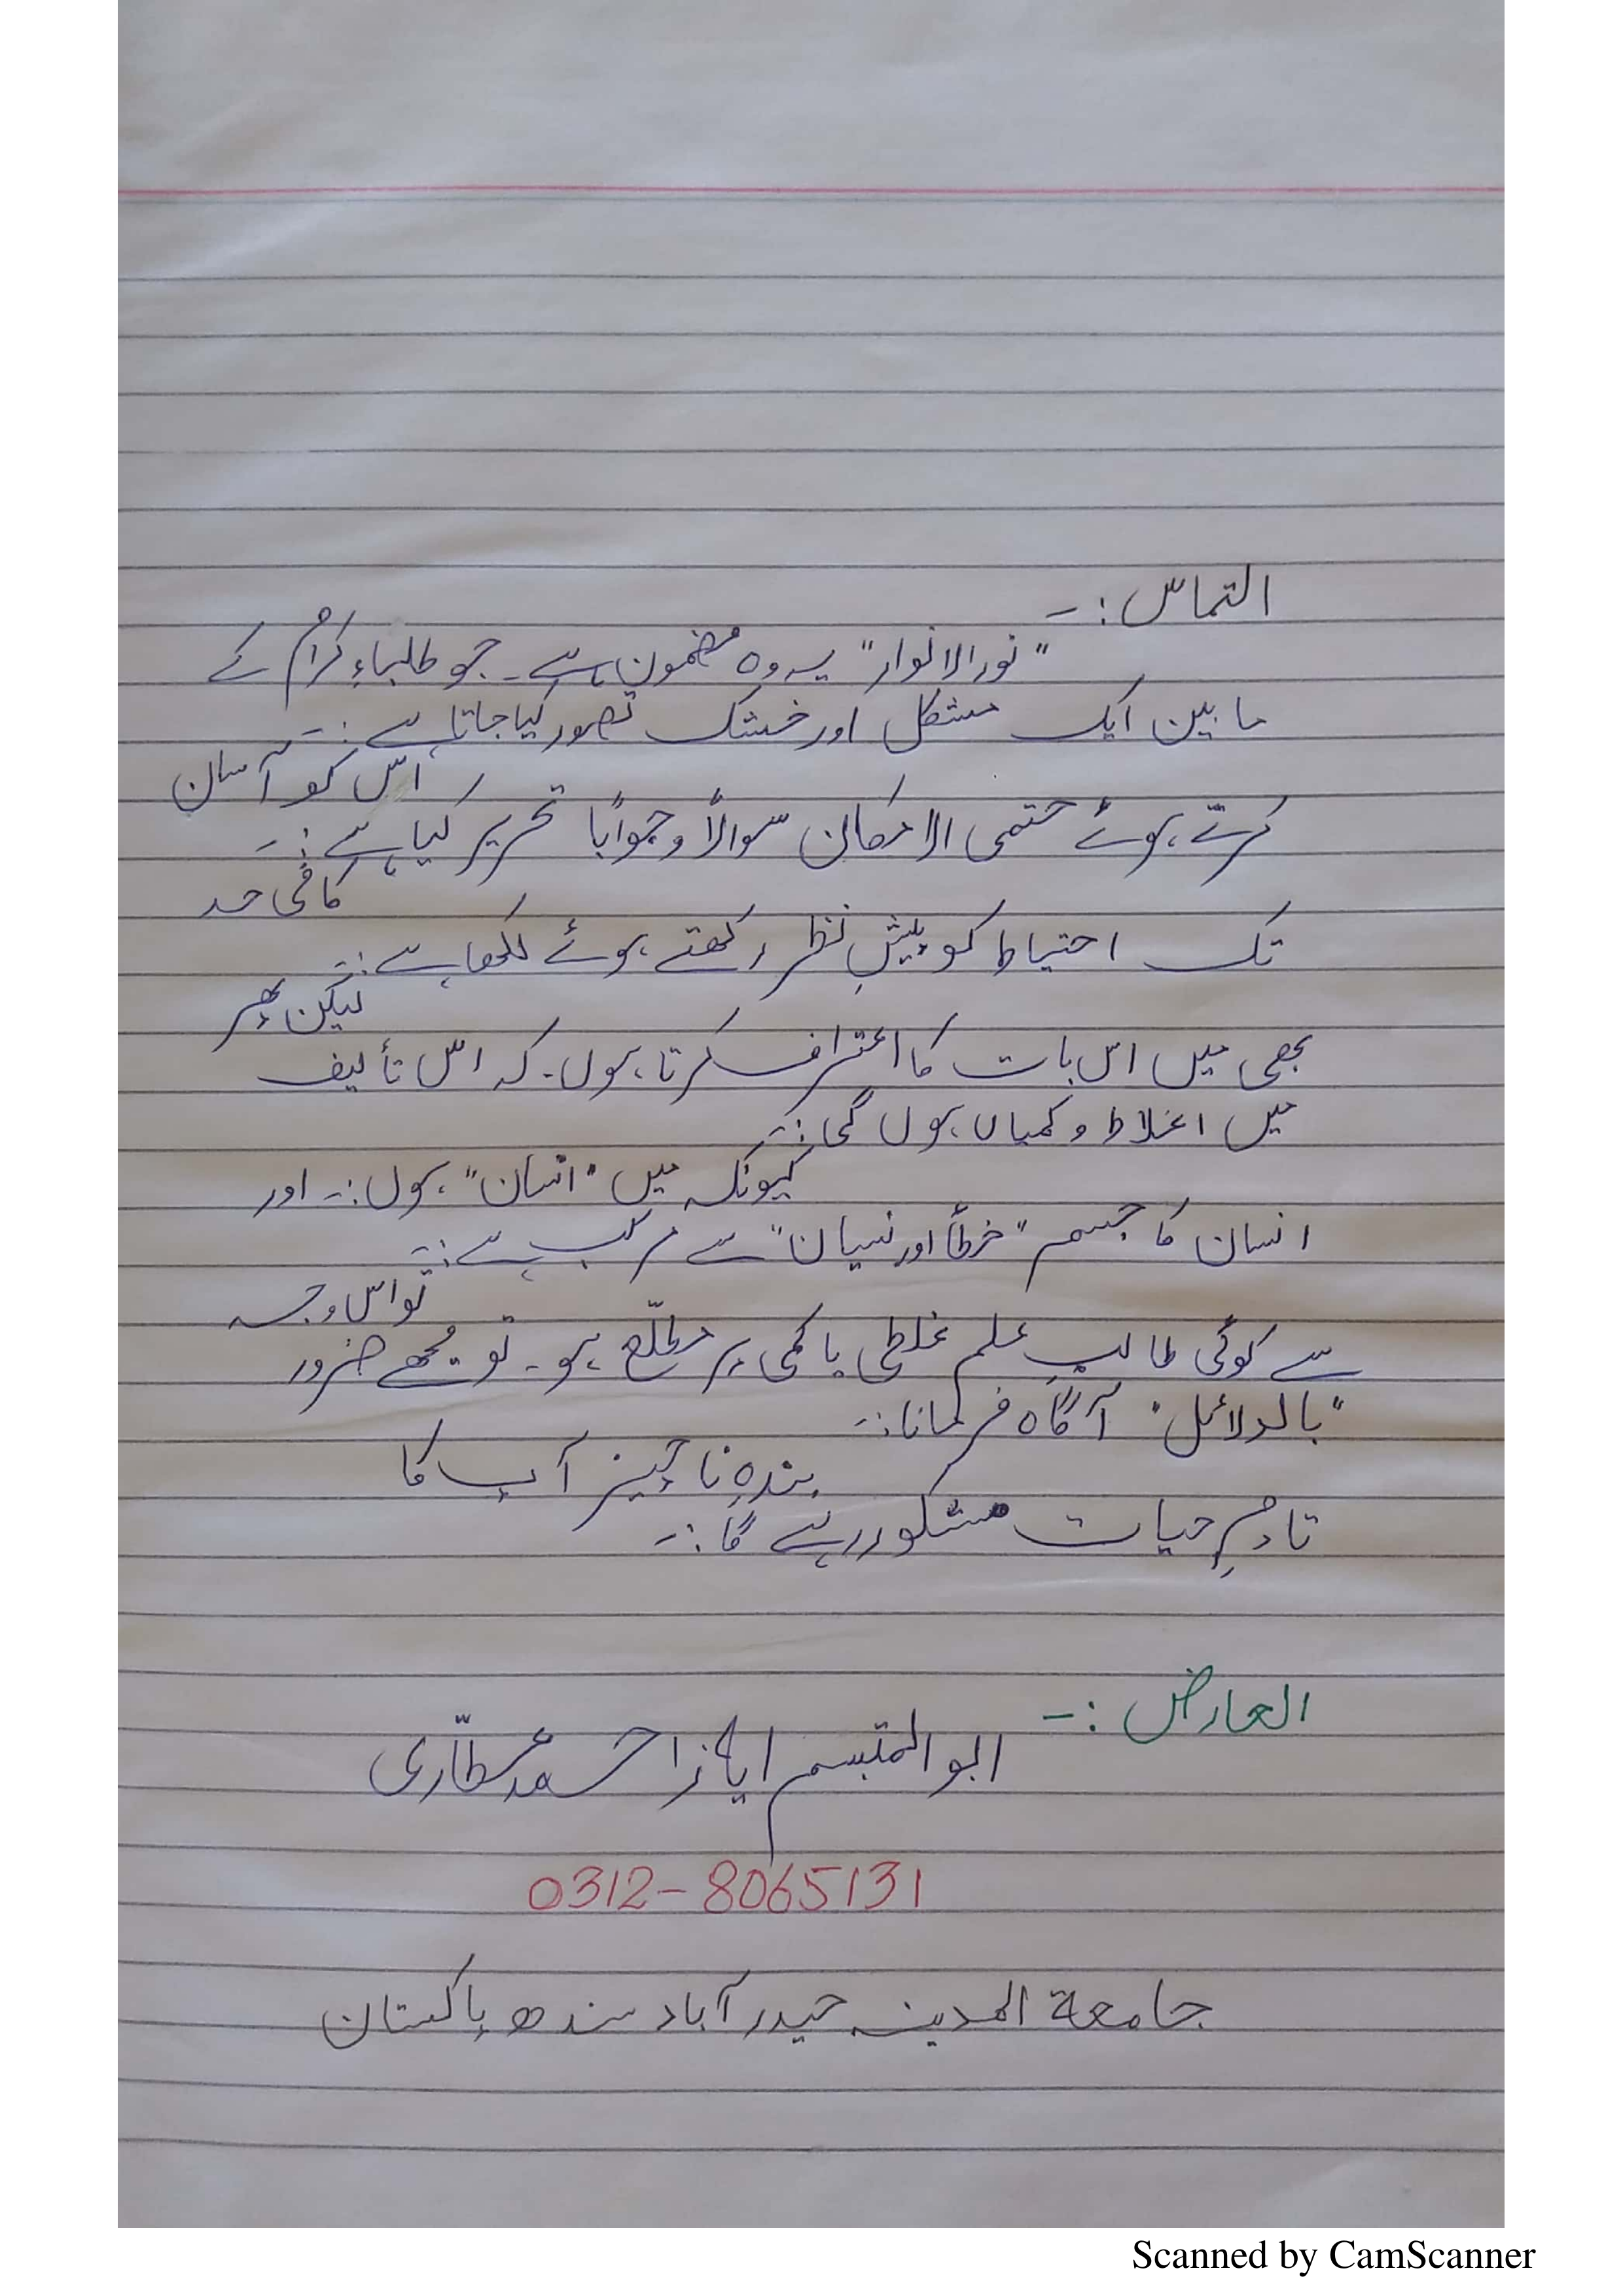 التماس :-
"نورالانوار" یہ وہ مضمون ہے۔ جو طلباءِ کرام کے
مابین ایک مشکل اور خشک تصور کیا جاتا ہے :-
اس کو آسان
کرتے ہوئے حتمی الامکان سوالاً و جواباً تحریر کیا ہے :-
کافی حد
تک احتیاط کو پیشِ نظر رکھتے ہوئے لکھا ہے :-
لیکن پھر
بھی میں اس بات کا اعتراف کرتا ہوں۔ کہ اس تألیف
میں اغلاط و کمیاں ہوں گی :-
کیونکہ میں "انسان" ہوں :- اور
انسان کا جسم "خطأ اور نسیان" سے مرکب ہے :-
تو اس وجہ
سے کوئی طالبِ علم غلطی یا کمی پر مطلّع ہو۔ تو مُجھے ضرور
"بالدلائل" آگاہ فرمانا :-
بندہِ ناچیز آپ کا
تادمِ حیات مشکور رہے گا :-
العارض :-
ابو المتبسم ایاز احمد عطّاری
0312-8065131
جامعة المدینہ حیدر آباد سندھ پاکستان
Scanned by CamScanner